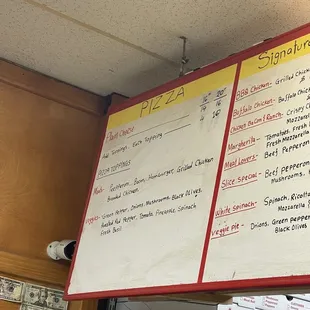 PIZZA
16" 20"
Pizza Cheese
Add Toppings - Each Topping
PIZZA TOPPINGS
Meats - Pepperoni, Bacon, Hamburger, Grilled Chicken
Breaded Chicken
Veggies - Green Pepper, Onions, Mushrooms, Black Olives
Roasted Red Pepper, Tomato, Pineapple, Spinach
Fresh Basil
Signature
BBQ Chicken - Grilled Ch
Buffalo Chicken - Buffalo Chick
Chicken Bacon & Ranch - Crispy
Mozzarella
Margherita - Tomatoes, Fresh
Fresh Mozzarella
Meat Lovers - Beef Pepperoni
Slice Special - Beef Pepperon
Mushrooms,
White Spinach - Spinach, Ricotta
Mozzarella
Veggie Pie - Onions, Green Pepper
Black Olives